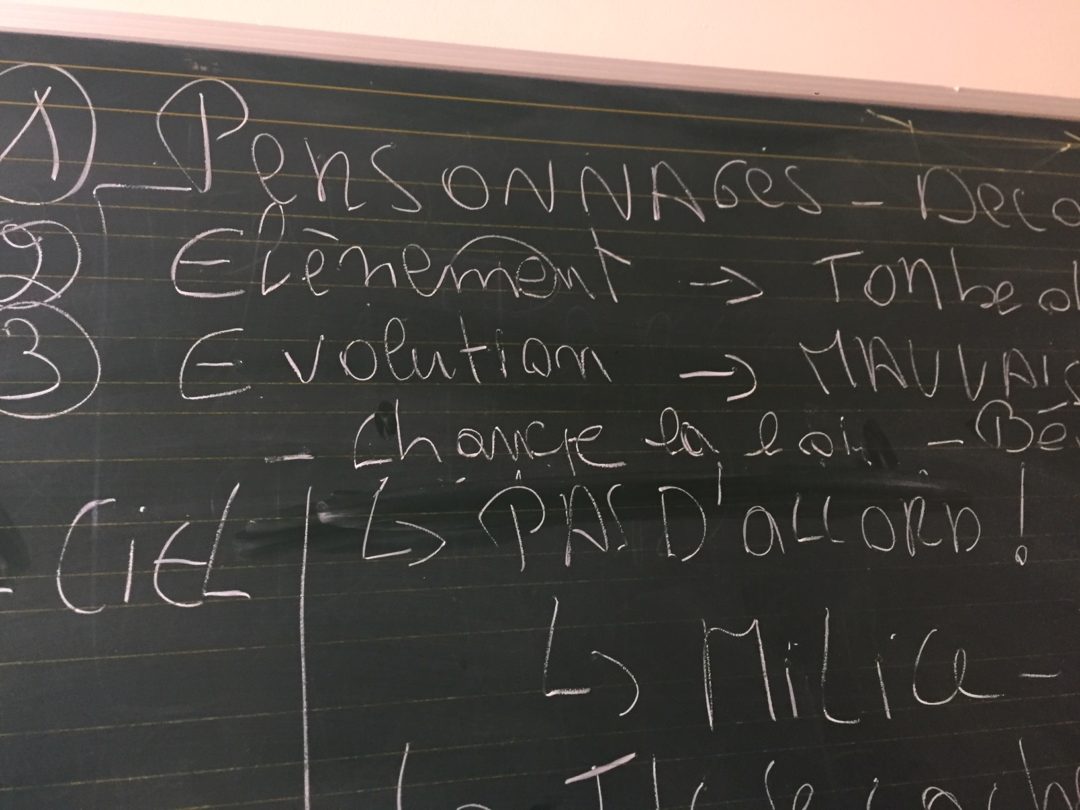 ① Personnages - Deco
② Elènement → Tombe d
③ Evolution → MAUVAIS
- Change la loi - Bé
- CiEL
↳ PAS D'accord !
↳ MiLice -